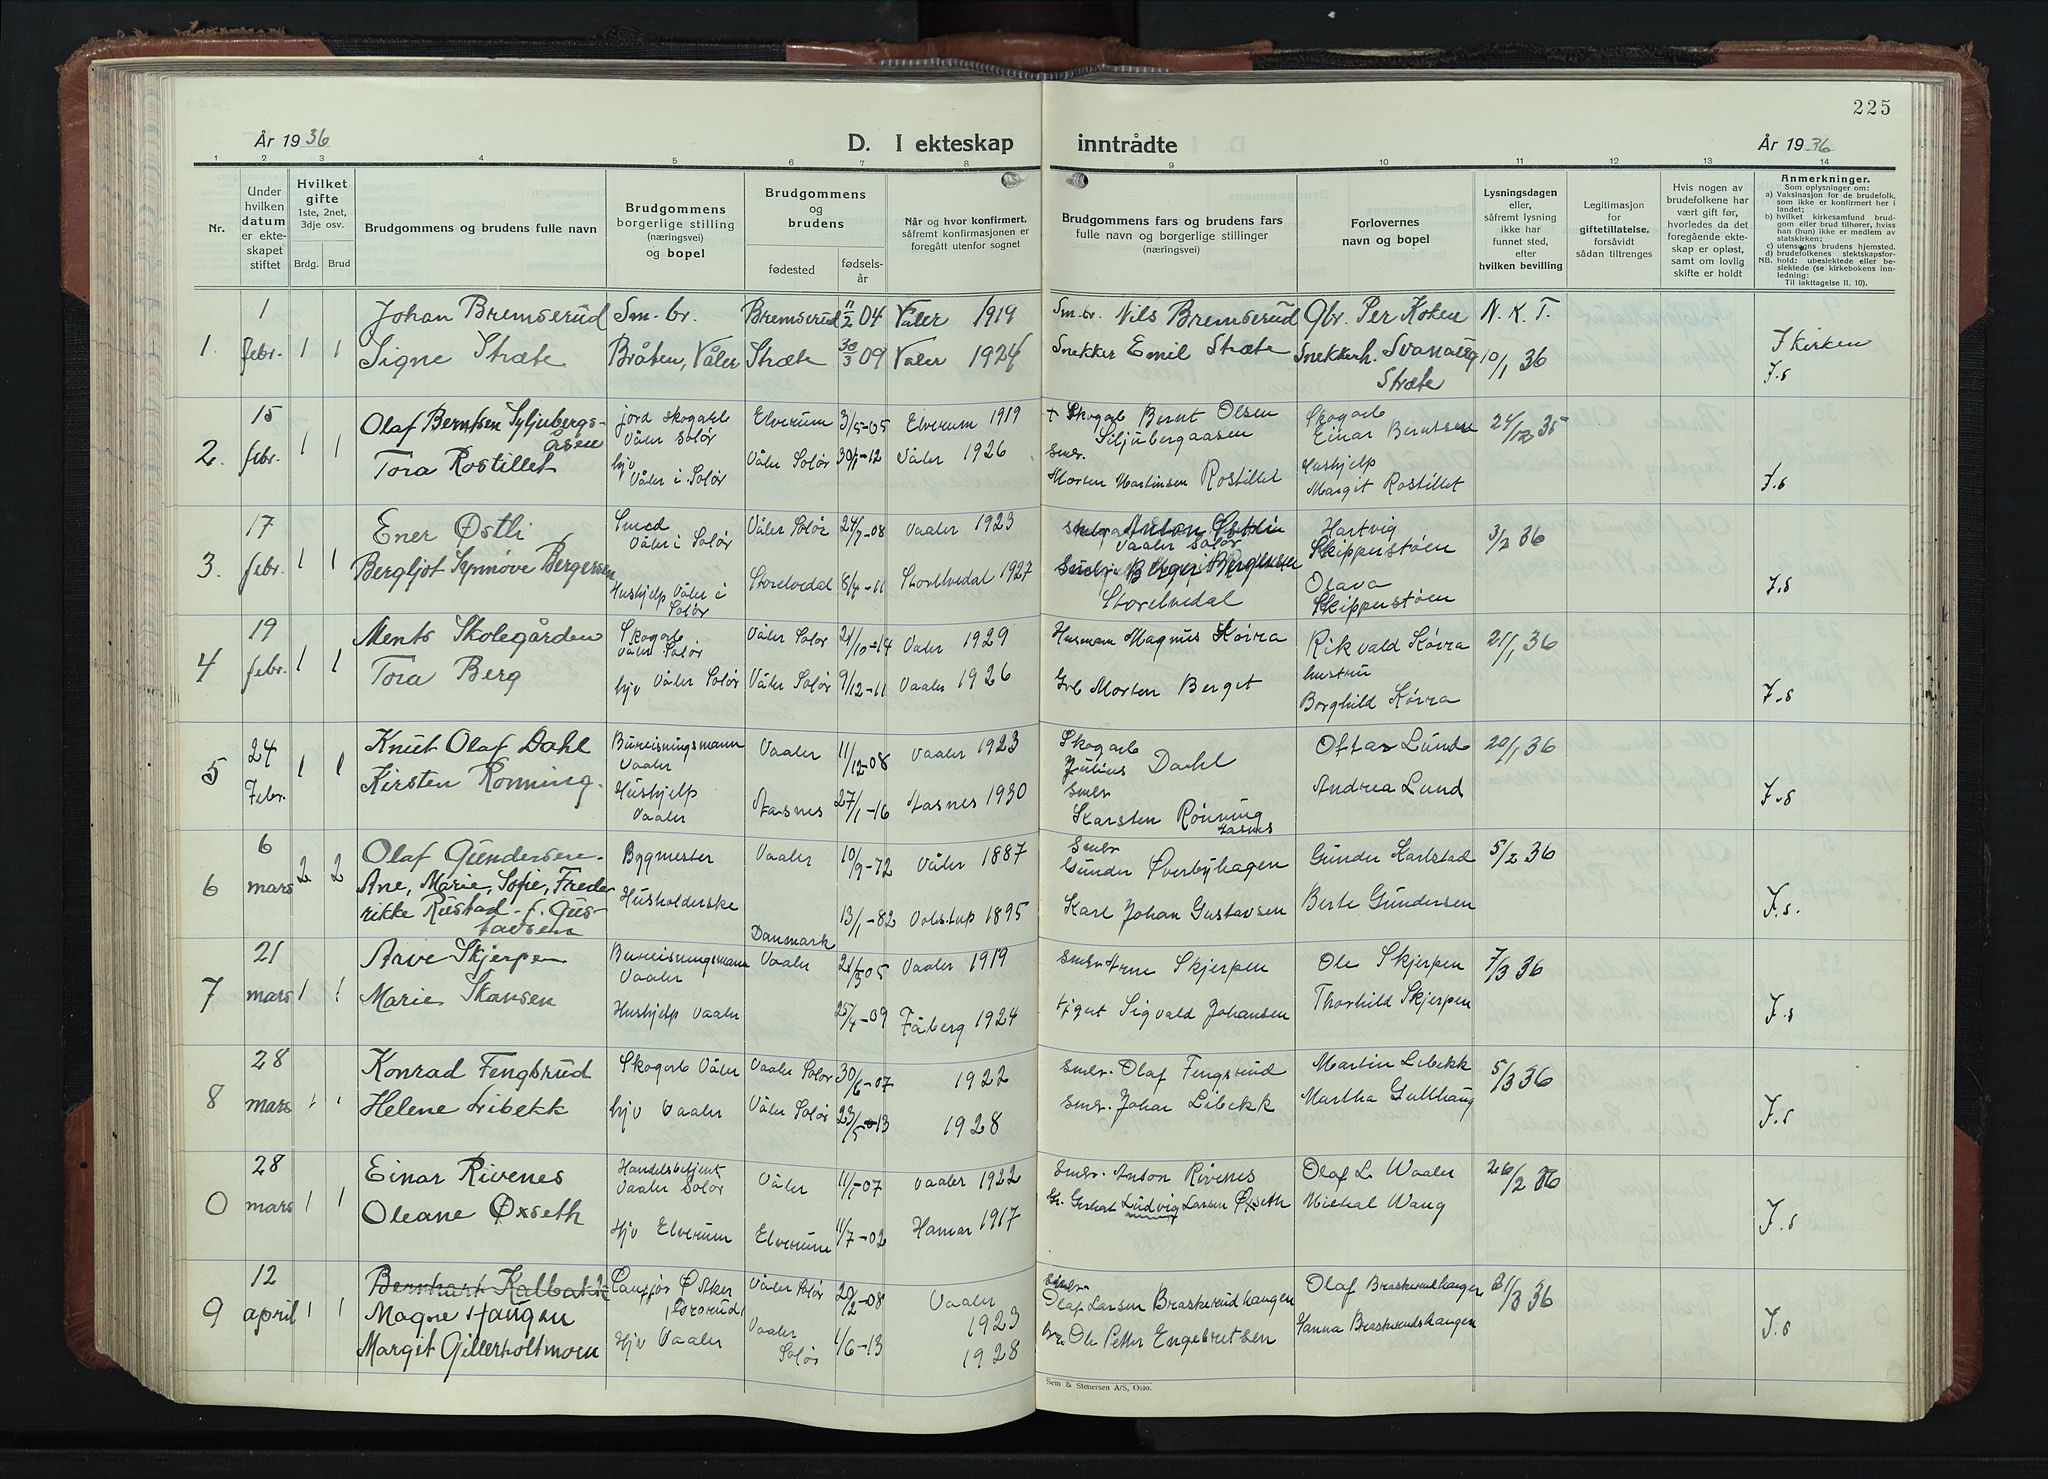 225
År 1936
D. I ekteskap
inntrådte
År 1936
1 2 3 4 5 6 7 8 9 10 11 12 13 14
Nr.
Under hvilken datum er ekteskapet stiftet
Hvilket gifte
1ste, 2net, 3dje osv.
Brdg. Brud
Brudgommens og brudens fulle navn
Brudgommens borgerlige stilling (næringsvei) og bopel
Brudgommens og brudens
fødested
fødsels-år
Når og hvor konfirmert, såfremt konfirmasjonen er foregått utenfor sognet
Brudgommens fars og brudens fars fulle navn og borgerlige stillinger (næringsvei)
Forlovernes navn og bopel
Lysningsdagen eller, såfremt lysning ikke har funnet sted, efter hvilken bevilling
Legitimasjon for giftetillatelse, forsåvidt sådan tiltrenges
Hvis nogen av brudefolkene har vært gift før, hvorledes da det foregående ekteskap er opløst, samt om lovlig skifte er holdt
Anmerkninger.
Som oplysninger om:
a) Vaksinasjon for de brudefolk, som ikke er konfirmert her i landet;
b) hvilket kirkesamfund brudgom eller brud tilhører, hvis han (hun) ikke er medlem av statskirken;
c) utensogns brudens hjemsted.
d) brudefolkenes slektskapsforhold: ubeslektede eller beslektede (se kirkebokens innledning:
NB. Til iakttagelse II. 10).
1. 1 febr. 1 1
Johan Bremserud Sm.br. Bremserud 11/2 04 Våler 1919 Sm.br. Nils Bremserud Gbr. Per Koten N. K. T.
Signe Stræte Bråten, Våler Stræte 30/3 09 Våler 1924 Snekker Emil Stræte Snekkerh. Svanaug Stræte 10/1 36 I kirken
F.s
2. 15 febr. 1 1
Olaf Berntsen Syljubergsåsen jord skogarb Våler Solør Elverum 3/5-05 Elverum 1919 + Skogarb Bernt Olsen Siljubergaasen Skogarb Einar Berntsen 24/12 35
Tora Rostillet hjv Våler i Solør Våler Solør 30/1-12 Våler 1926 Smbr. Morten Martinsen Rostillet Hushjelp Margit Rostillet F.s
3. 17 febr. 1 1
Ener Østli Smed Våler i Solør Våler Solør 24/7-08 Vaaler 1923 Vaaler Solør Hartvig Skipperstøen 3/2 36
Bergljot Synnøve Bergersen Hushjelp Våler i Solør Storelvedal 8/4-11 Storelvedal 1927 Storelvedal Olava Skipperstøen F.s
4 19 febr. 1 1
Ments Skolegården Skogarb Våler Solør Våler Solør 21/10-14 Våler 1929 Husmann Magnus Kørra Rikvald Kørra 21/1 36
Tora Berg hjv Våler Solør Våler Solør 9/12-11 Vaaler 1926 Grb Morten Berget hustru Borghild Kørra F.s
5 24 Febr. 1 1
Knut Olaf Dahl Bureisningsmann Vaaler Vaaler 11/12-08 Vaaler 1923 Skogarb Julius Dahl Oftar Lund 20/1 36
Kirsten Rønning. Hushjelp Vaaler Aasnes 27/1-16 Aasnes 1930 Smbr Karsten Rønning Aasnes Andrea Lund F.s
6 6 mars 2 2
Olaf Gundersen Bygmester Vaaler 10/9-72 Våler 1887 Smbr Gunder Overbyhagen Gunder Karlstad 5/2 36
Ane, Marie, Sofie, Frederikke Rustad f. Gustavsen Husholderske Danmark 13/1-82 Volstup 1895 Karl Johan Gustavsen Berte Gundersen F.s.
7 21 mars 1 1
Arve Skjerpen Bureisningsmann Vaaler Vaaler 21/3 05 Vaaler 1919 Smbr Arne Skjerpen Ole Skjerpen 7/3 36
Marie Skansen Hushjelp Vaaler 25/4-09 Fåberg 1924 Sigvald Johansen Thorhild Skjerpen F.s
8 28 mars 1 1
Konrad Fengsrud Skogarb Våler Vaaler Solør 30/6-07 1922 Smbr. Olaf Fengsrud Martin Libekk 5/3 36
Helene Libekk hjv Vaaler Våler Solør 23/5-13 1928 Smbr. Johan Libekk Martha Gullhaug F.s
0 28 mars 1 1
Einar Rivenes Handelsbetjent Vaaler Solør Våler 11/1-07 Vaaler 1922 Smbr. Anton Rivenes Olaf L. Vaaler 26/2 36
Oleane Øxseth Hjv Elverum Elverum 11/7-02 Hamar 1917 Ludvig Larsen Øxseth Michal Wang F.s
9 12 april 1 1
Bernhart Kalbakk
Magne Haugen Østker Våler Solør 20/2-08 Vaaler 1923 Smbr Olaf Larsen Braskerudhaugen Olaf Braskerudhaugen 21/3 36
Margit Gillerholtmoen Hjv Vaaler Vaaler Solør 1/6-13 1928 Ole Petter Engebretsen Hanna Braskerudshaugen F.s
Sem & Stenersen A/S, Oslo.